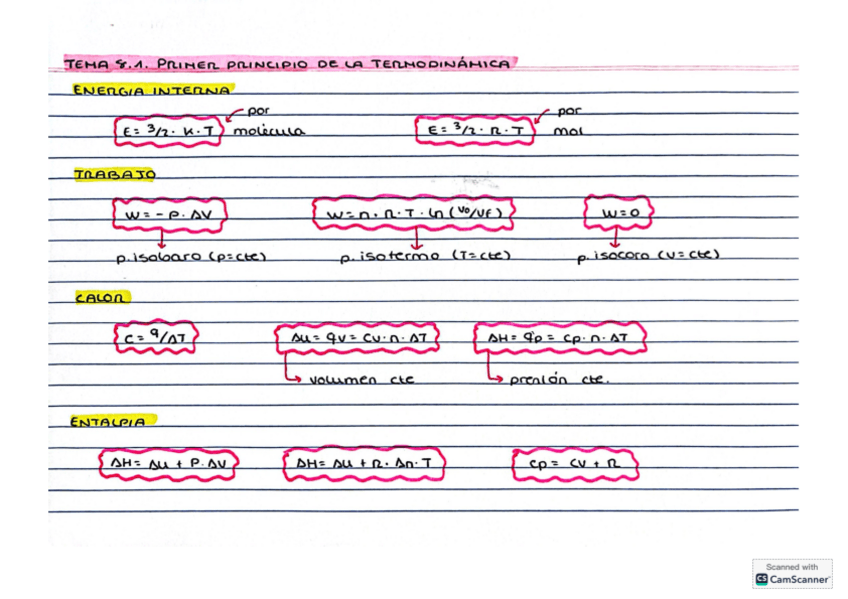 TEMA 8.1. PRIMER PRINCIPIO DE LA TERMODINÁMICA
ENERGÍA INTERNA
E = 3/2 · K · T por molécula
E = 3/2 · R · T por mol
TRABAJO
W = - P · ΔV
W = n · R · T · ln (V0/VF)
W = 0
p. isobaro (p=cte)
p. isotermo (T=cte)
p. isocoro (V=cte)
CALOR
C = q/ΔT
ΔU = qv = Cv · n · ΔT
ΔH = qp = Cp · n · ΔT
volumen cte
presión cte.
ENTALPIA
ΔH = ΔU + P · ΔV
ΔH = ΔU + R · Δn · T
Cp = CV + R
Scanned with
CS CamScanner